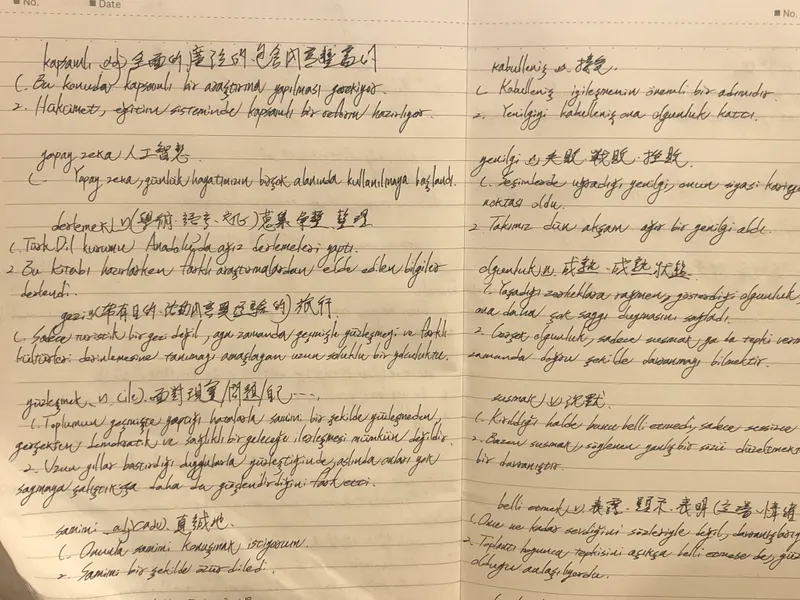 No.
Date
kapsamlı adj 全面的 廣泛的 包含內容豐富的
1. Bu konuda kapsamlı bir araştırma yapılması gerekiyor.
2. Hükümet, eğitim sisteminde kapsamlı bir reform hazırlıyor.
yapay zeka 人工智慧
1. Yapay zeka, günlük hayatımızın birçok alanında kullanılmaya başlandı.
derlemek v (學術·語言·文化) 蒐集 彙整 整理
1. Türk Dil kurumu Anadolu'da ağız derlemeleri yaptı.
2. Bu kitabı hazırlarken farklı araştırmalardan elde edilen bilgiler
derlendi.
gezi 旅行
1. Sadece turistik bir gezi değil, aynı zamanda geçmişle yüzleşmeyi ve farklı
kültürleri derinlemesine tanımayı amaçlayan uzun soluklu bir yolculuktu.
yüzleşmek v. (ile). 面對現實/問題/自己....
1. Toplumun geçmişte yaptığı hatalarla samimi bir şekilde yüzleşmeden,
gerçekten demokratik ve sağlıklı bir geleceğe ilerlemesi mümkün değildir.
2. Uzun yıllar bastırdığı duygularla yüzleştiğinde, aslında onları yok
saymaya çalıştıkça daha da güçlendirdiğini fark etti.
samimi adj(adv). 真誠地
1. Onunla samimi konuşmak istiyorum.
2. Samimi bir şekilde özür diledi.
No.
kabulleniş n. 接受
1. Kabulleniş iyileşmenin önemli bir adımıdır.
2. Yenilgiyi kabulleniş ona olgunluk kattı.
yenilgi n 失敗·戰敗·挫敗
1. Seçimlerde uğradığı yenilgi, onun siyasi kariye
noktası oldu.
2. Takımız dün akşam ağır bir yenilgi aldı.
olgunluk n. 成熟·成熟狀態
1. Yaşadığı zorluklara rağmen, gösterdiği olgunluk
ona daha çok saygı duymasını sağladı.
2. Gerçek olgunluk, sadece susmak, ya da tepki verm
zamanda doğru şekilde davranmayı bilmektir.
susmak v 沉默
1. Kırıldığı halde bunu belli etmedi, sadece sessizce
2. Bazen susmak, söylenen yanlış bir sözü düzeltmekt
bir davranıştır.
belli etmek v. 表露·顯示·表明
1. Onu ne kadar sevdiğini sözleriyle değil, davranışlarıy
2. Toplantı boyunca tepkisini açıkça belli etmese de,
olduğu anlaşılıyordu.